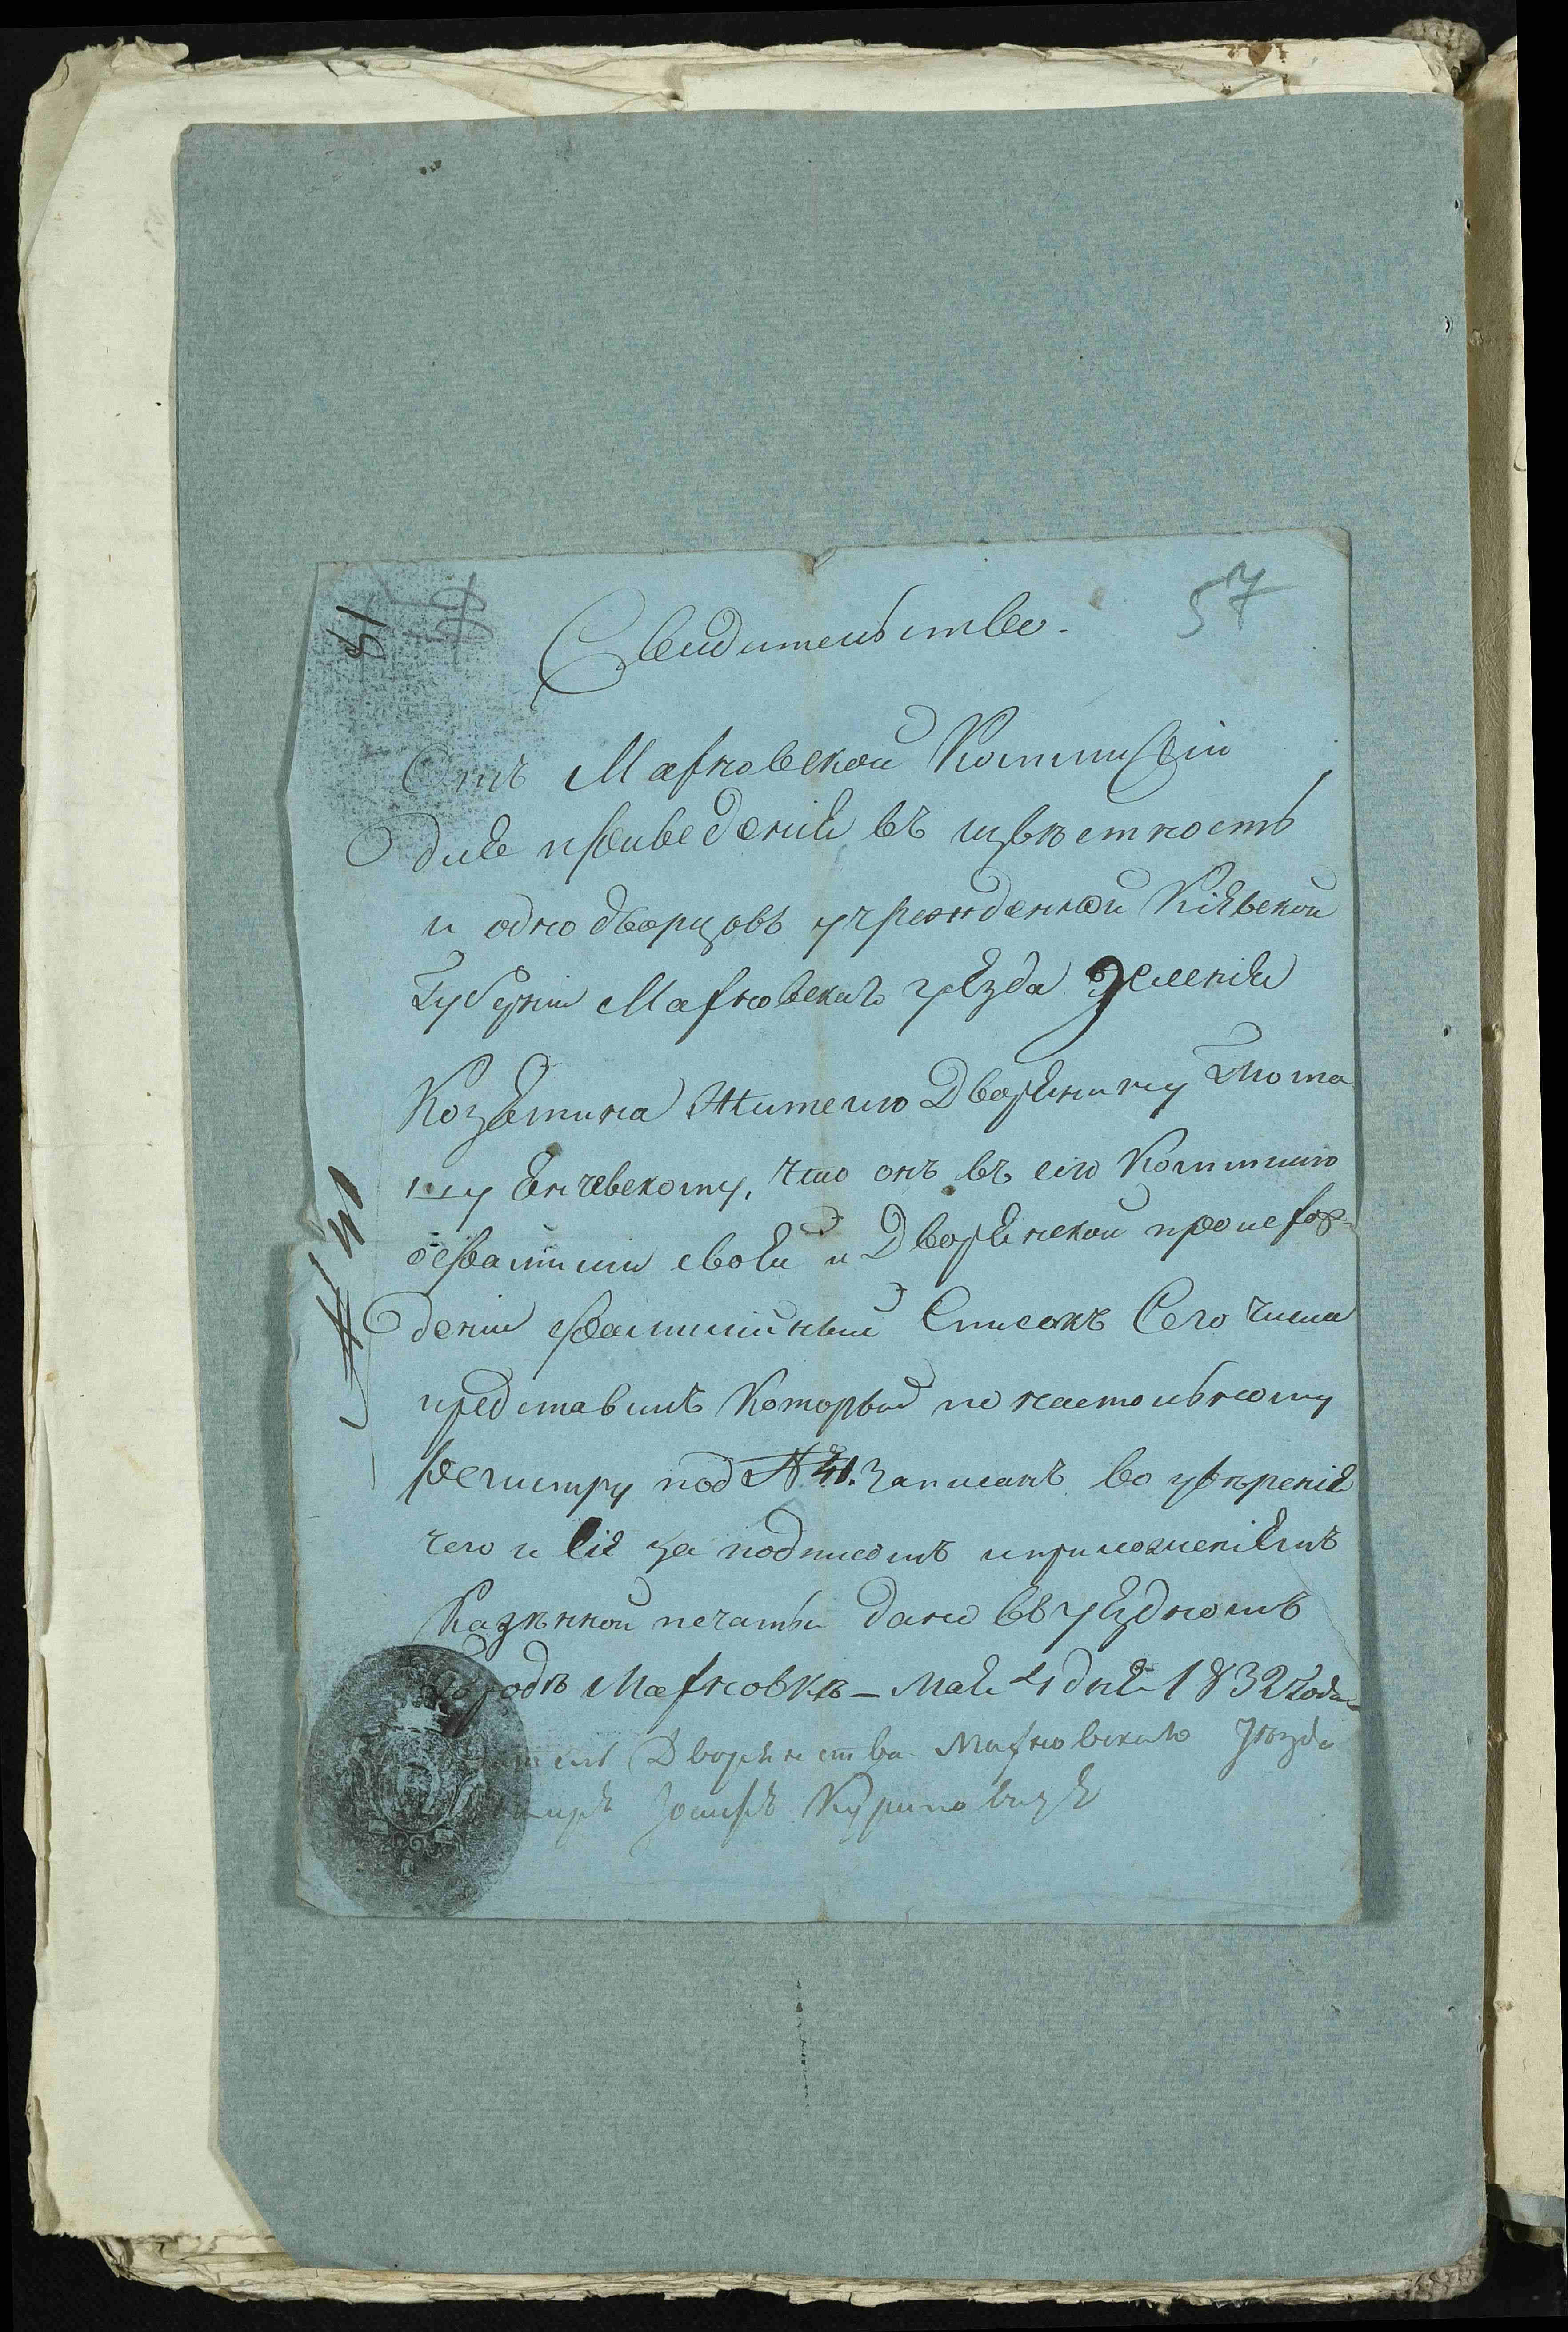 57
Свидительство.
Отъ Махновской Коммиссіи
для приведенія въ извѣстность
и однодворцовъ учрежденной Кіявской
Губерніи Махновскаго уѣзда
Козятина Жителю Дворянину Тома
шу Енчевскому, что онъ въ сію Коммисію
о фамиліи своей и Дворянской происхож
деніи фамилійный Списокъ Сего числа
представилъ Который по настольному
регистру под № 41. записанъ во увѣреніе
чего и сіе за подписомъ и приложеніемъ
Казѣнной печати дано въ уѣздномъ
Городѣ Махновкѣ – Мая 4 дня 1832 года
Дворянства Махновскаго Уѣзда